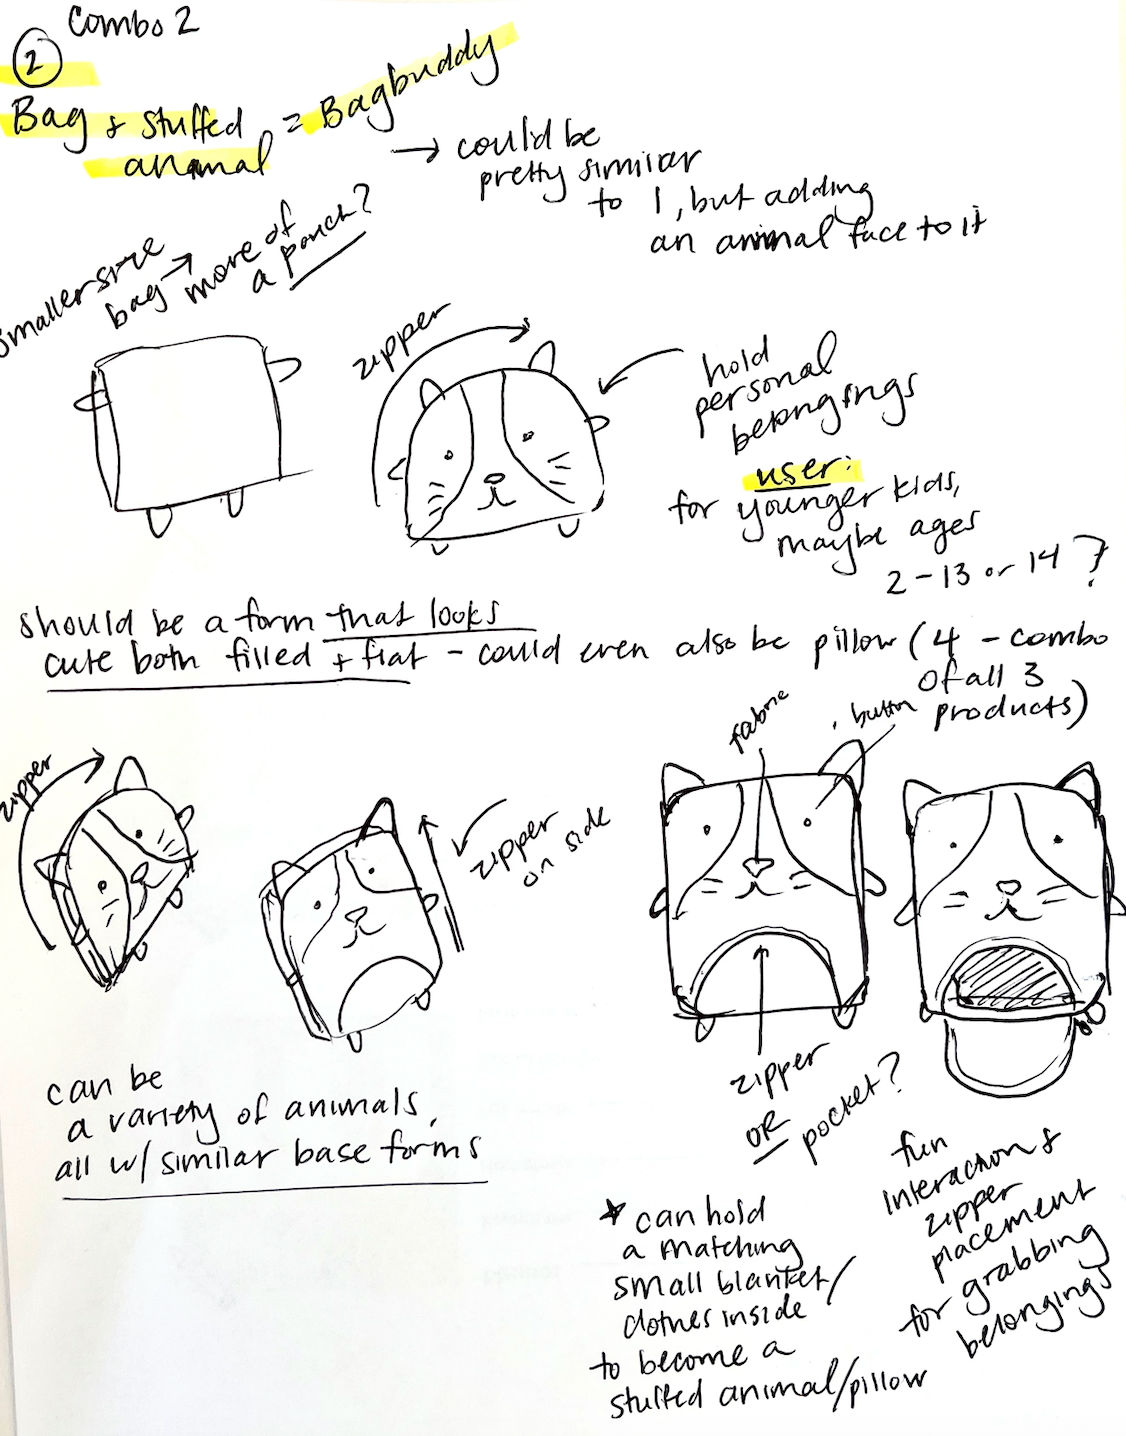 Combo 2
2
Bag & stuffed
animal
= Bagbuddy
→ could be
pretty similar
to 1, but adding
an animal face to it
smaller size
bag → more of
a pouch?
zipper
hold
personal
belongings
user:
for younger kids,
maybe ages
2-13 or 14?
should be a form that looks
cute both filled + flat - could even also be pillow (4 - combo
of all 3
products)
zipper
zipper
on side
fabric
button
zipper
OR
pocket?
can be
a variety of animals,
all w/ similar base forms
fun
interaction &
zipper
placement
for grabbing
belongings
★ can hold
a matching
small blanket/
clothes inside
to become a
stuffed animal/pillow